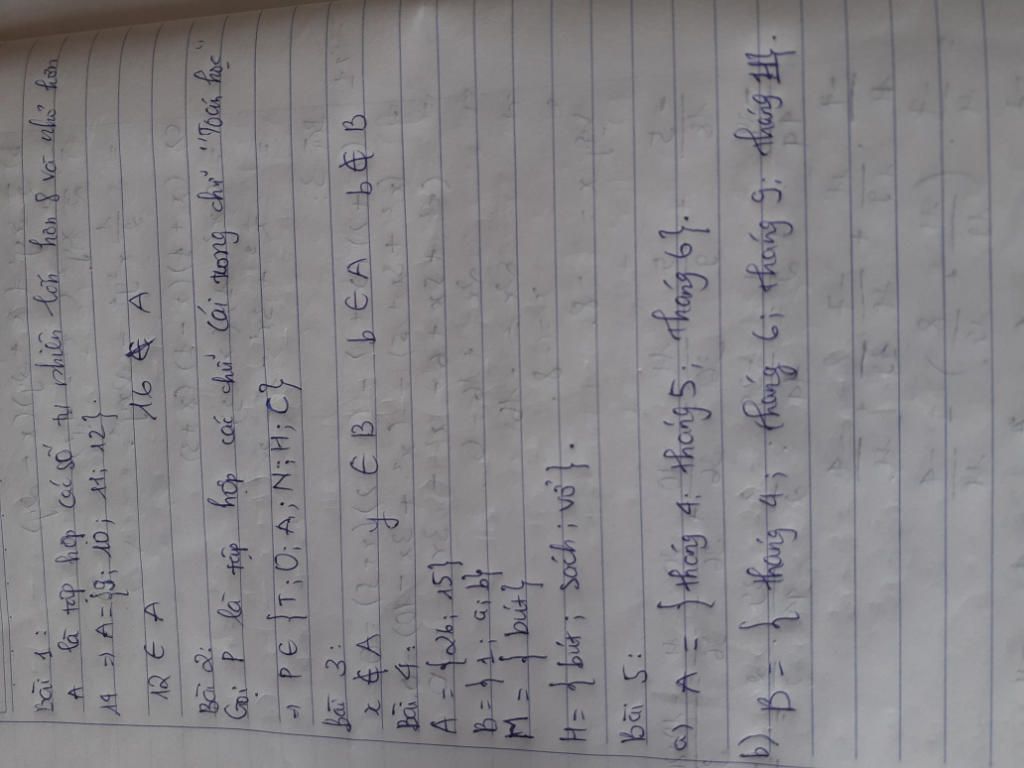 Bài 1:
A là tập hợp các số tự nhiên lớn hơn 8 và nhỏ hơn
14 => A = {9; 10; 11; 12}.
12 ∈ A 16 ∉ A
Bài 2:
Gọi P là tập hợp các chữ cái trong chữ "Toán học"
→ P ∈ {T; O; A; N; H; C}
Bài 3:
x ∉ A y ∈ B b ∈ A b ∉ B
Bài 4:
A = {26; 15}
B = {1; a; b}
M = {bút}
H = {bút; sách; vở}.
Bài 5:
a) A = {tháng 4; tháng 5; tháng 6}.
b) B = {tháng 4; tháng 6; tháng 9; tháng 11}.